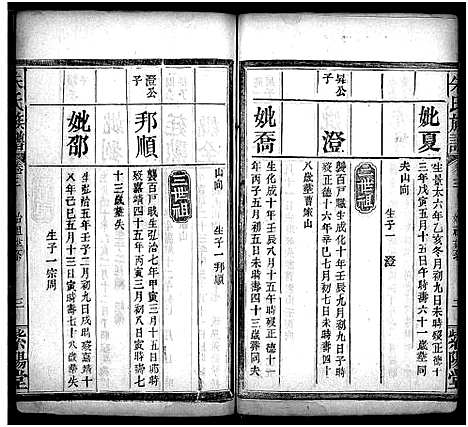 朱氏族譜
妣夏
生景泰六年乙亥冬月初九日亥時
三年戊寅五月十三日午時壽六十一歲葬同
夫山向
生子一 澄
昇公子
澄
襲百戶職生成化十年壬辰九月初九日子時
歿正德十六年辛巳七月初七日未時壽四十
八歲葬曹家山
三世祖
妣喬
生成化十年壬辰三月初九日辰時歿正德十一
年丙子五月初三日午時壽四十三歲葬同夫
山向
生子一邦順
澄公子
邦順
襲百戶職生弘治七年甲寅三月十五日寅時
歿嘉靖四十五年丙寅三月初八日寅時壽七
十三歲葬失
四世祖
妣邵
生弘治五年壬子二月初九日戌時歿嘉靖十
年己巳五月十三日寅時壽七十八歲葬失
生子一宗周
朱氏族譜
卷三
三
紫陽堂